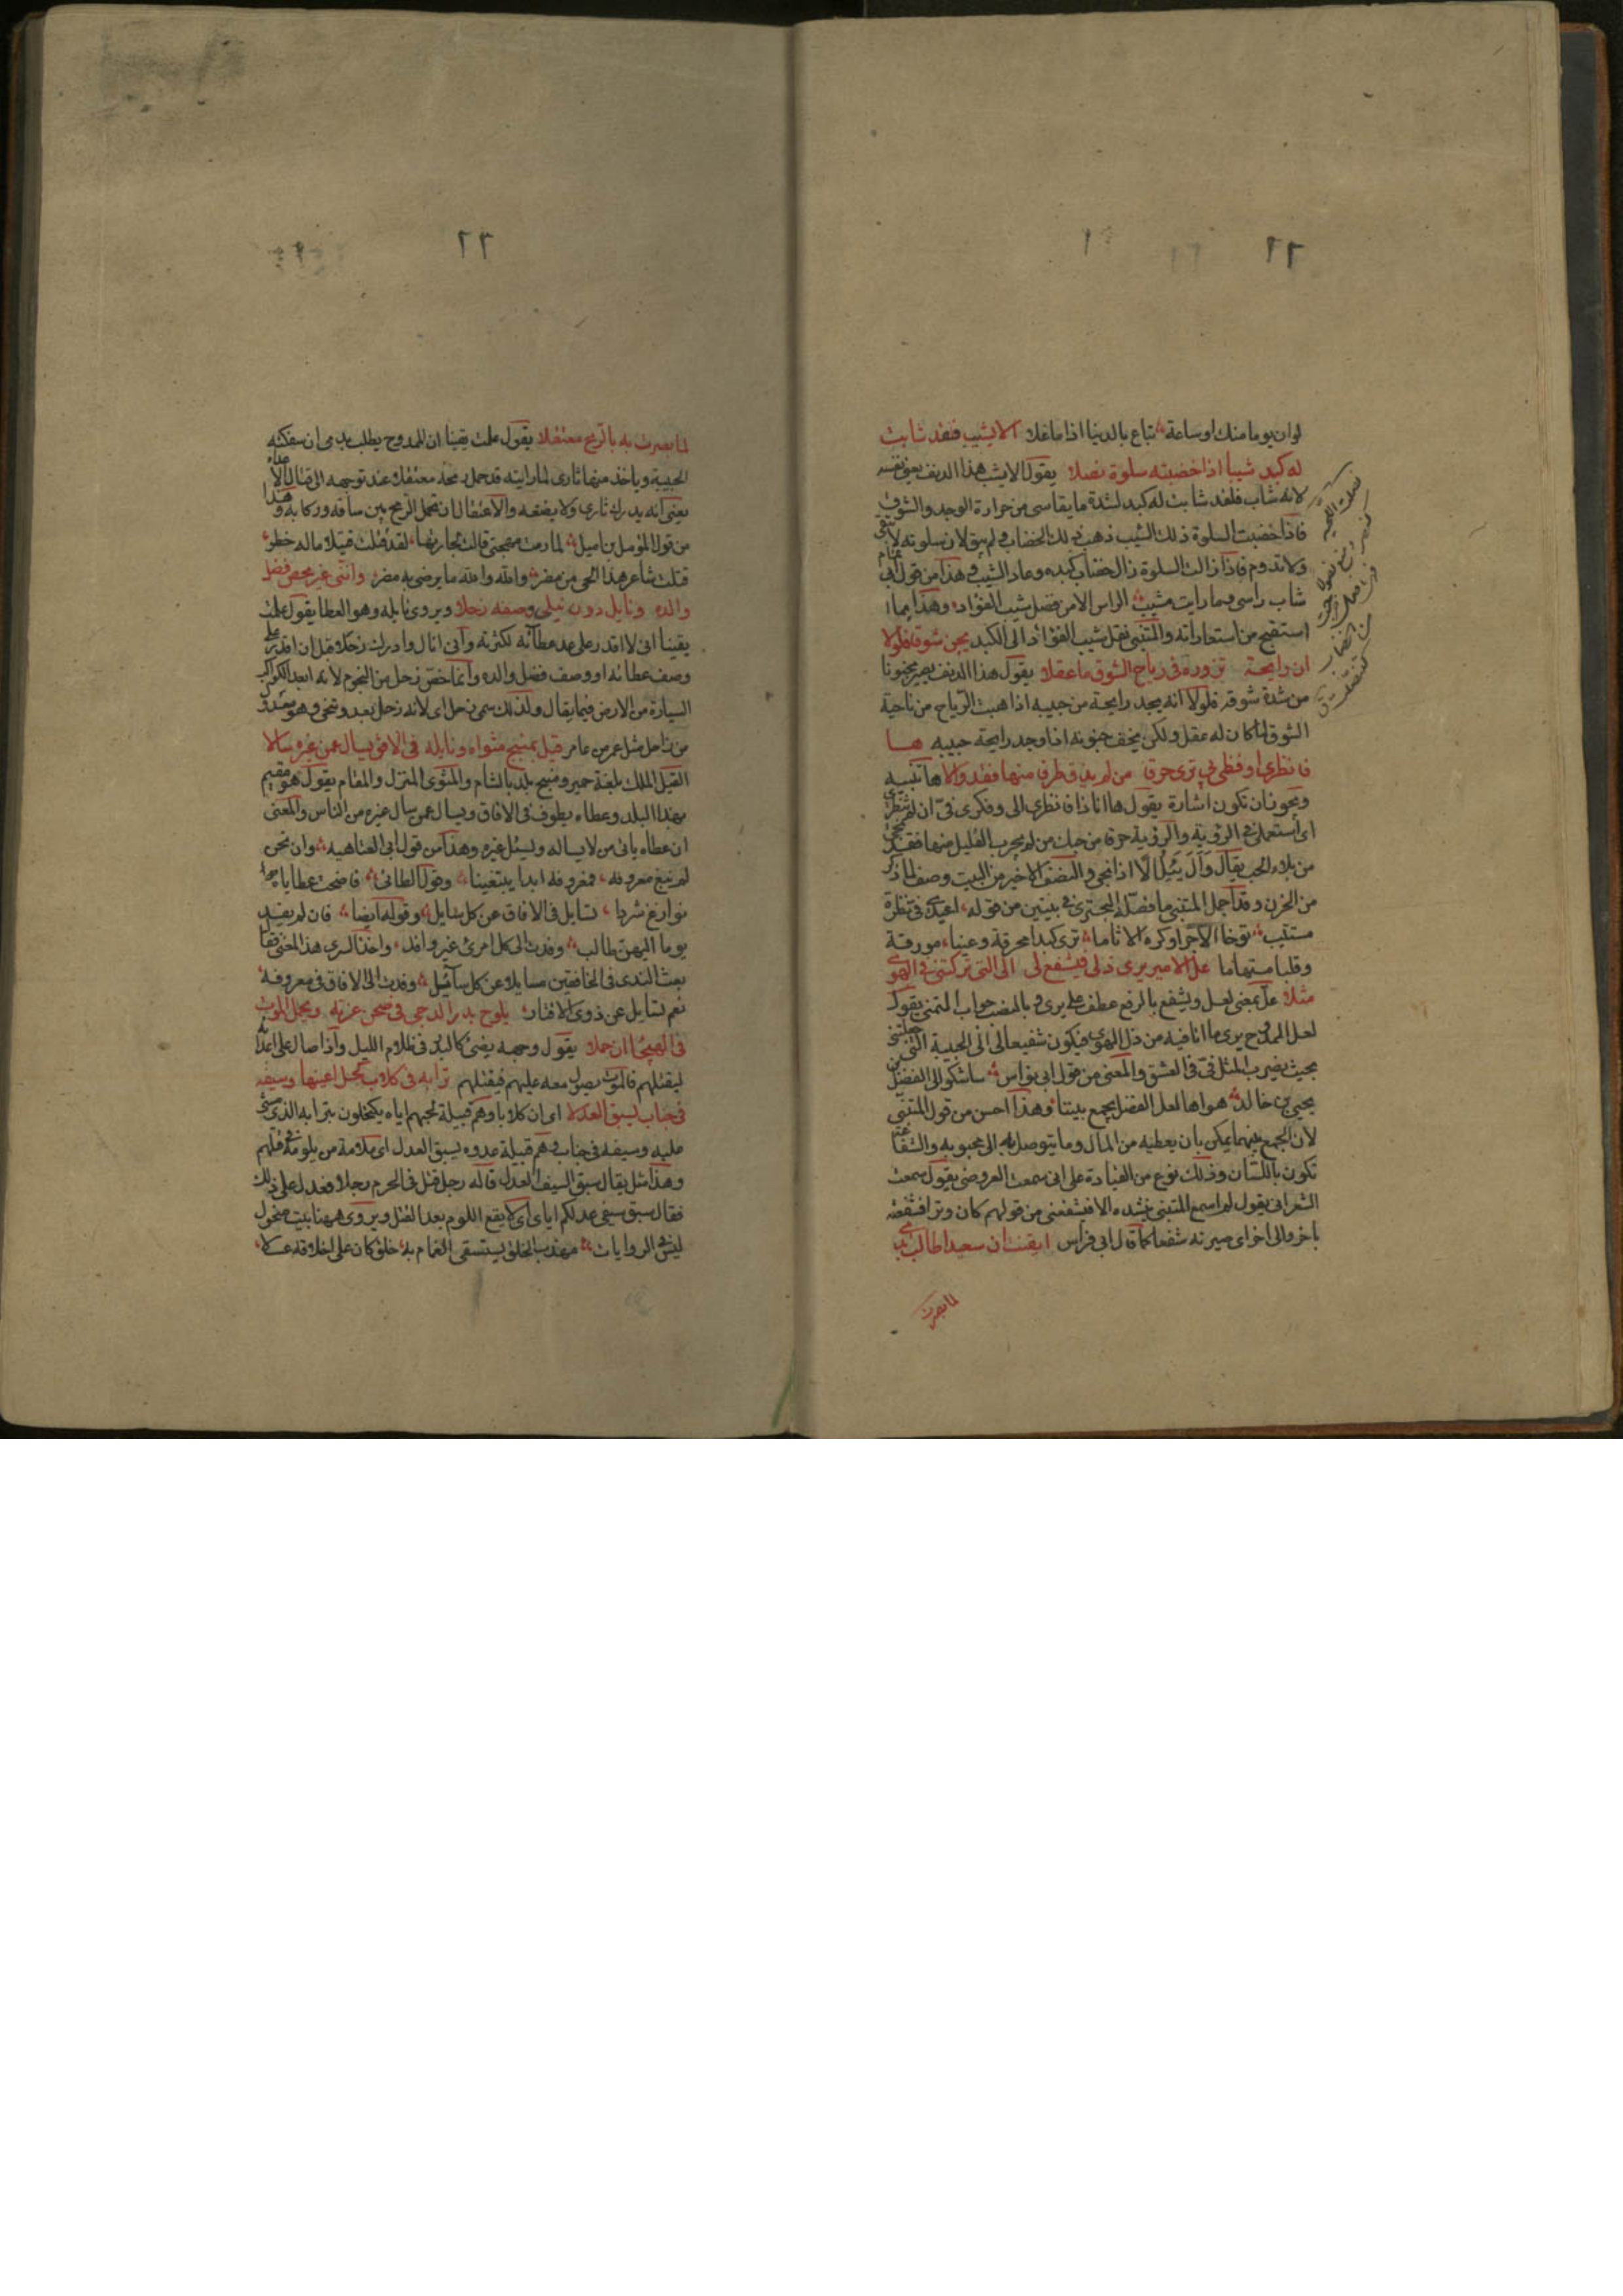 لو ان يوما منك او ساعة تباع بالدنيا اذا ما غلا الا يشيب فقد شابت
له كبد شيبا اذا خضبته سلوة نصلا يقول الا يشب هذا الدنف يعنى نفسه
لانه شاب فلقد شابت له كبد لشدة ما يقاسى من حرارة الوجد والشوق
فاذا خضبت السلوة ذلك الشيب ذهب ذلك الخضاب ولم يبق لان سلوته لا تبقى
ولا تدوم فاذا زالت السلوة زال خضاب كبده وعاد الشيب وهذا من قول ابى تمام
شاب راسى وما رايت مشيب الراس الا من فضل شيب الفؤاد وهذا مما
استقبح من استعاراته والمتنبى نقل شيب الفؤاد الى الكبد يجن شوقا فلولا
ان رايحة تزوره فى رياح الشوق ما عقلا يقول هذا الدنف يصير مجنونا
من شدة شوقه فلولا انه يجد رايحة من حبيبه اذا هبت الرياح من ناحية
الشوق لما كان له عقل ولكن يخف جنونه اذا وجد رايحة حبيبه ها
فانظرى او فظنى بى ترى حرقا من لم يذق طرفا منها فقد والا ها تنبيه
ويجوز ان تكون اشارة يقول ها انا ذا فانظرى الى وفكرى فى ان لم تنظرى
اى استعملى فى الروية والرؤية حرقا من حبك من لم يجرب القليل منها فقد نجى
من بلاء الحب يقال وال يئل والا اذا نجى والنصف الاخير من البيت وصف لما ذكر
من الحزن وقد اجمل المتنبى ما فصله البحترى فى بيتين من قوله اعيدى فى نظرة
مستثيب توخا الاجر او كره الاثاما ترى كبدا محرقة وعينا مورقة
وقلبا مستهاما عل الامير يرى ذلى فيشفع لى الى التى تركتنى فى الهوى
مثلا عل بمعنى لعل ويشفع بالرفع عطف على يرى وبالنصب جواب التمنى يقول
لعل الممدوح يرى ما انا فيه من ذل الهوى فيكون شفيعا لى الى الحبيبة التى جعلتنى
بحيث يضرب المثل فى فى العشق والمعنى من قول ابى نواس ساشكو الى الفضل بن
يحيى بن خالد هواها لعل الفضل يجمع بيننا وهذا احسن من قول المتنبى
لان الجمع بينهما يمكن بان يعطيه من المال وما يتوصل به الى محبوبه والشفاعة
تكون باللسان وذلك نوع من القيادة على انى سمعت العروضى يقول سمعت
الشعرانى يقول لم اسمع المتنبى ينشده الا فتشفعنى من قولهم كان وترا فشفعته
باخر والى اخر اى صيرته شفعا كما قال ابى فراس ايقنت ان سعيدا طالب بدمى
لما بصرت
٢٢
لما بصرت به بالرمح معتقلا يقول علمت يقينا ان الممدوح يطلب بدمى ان سفكته
الحبيبة وياخذ منها ثارى لما رايته قد حمل رمحه معتقلا عند توجهه الى قتال الاعداء
يعنى انه يدرك ثارى ولا يضيعه والاعتقال ان تحمل الرمح بين ساقه وركابه وهذا
من قول المؤمل بن اميل لما رمت مهجتى قالت لجارتها لقد قتلت قتيلا ما له خطر
قتلت شاعر هذا الحى من مضر والله والله ما يرضى به مضر وانى غير محص فضل
والده ونايل دون نيلى وصفه زحلا ويروى نايله وهو العطا يقول علمت
يقينا انى لا اقدر على عد عطائه لكثرته وانى انال وادرك زحلا قبل ان اقدر على
وصف عطائه او وصف فضل والده وانما خص زحل من النجوم لانه ابعد الكواكب
السيارة من الارض فيما يقال ولذلك سمى زحل اى لانه زحل بعد وتنحى وهو معدول
من زاحل مثل عمر من عامر قيل بمنبج مثواه ونايله فى الافق يسال عمن غيره سالا
القيل الملك بلغة حمير ومنبج بلد بالشام والمثوى المنزل والمقام يقول هو مقيم
بهذا البلد وعطاه يطوف فى الافاق ويسال عمن سال غيره من الناس والمعنى
ان عطاه ياتى من لا يساله ويسئل غيره وهذا من قول ابى العتاهيه وان نحن
لم نبغ معروفه فمعروفه ابدا يبتغينا وقول الطائى فاضحت عطاياه
نوازع شردا تسايل فى الافاق عن كل سايل وقوله ايضا فان لم يفد
يوما اليهن طالب وفدن الى كل امرئ غير وافد واخذ السرى هذا المعنى فقال
بعث الندى فى الخافقين مسايلا عن كل سائل وفدت الى الافاق فى معروفه
نعم تسايل عن ذوى الاقتار يلوح بدر الدجى فى صحن غرته ويحمل الموت
فى الهيجا ان حملا يقول وجهه يضئ كالبدر فى ظلام الليل واذا صال على اعدائه
ليقتلهم فالموت يصول معه عليهم فيقتلهم ترابه فى كلاب كحل اعينها وسيفه
فى جناب يسبق العذلا اى ان كلابا وهم قبيلة لحبهم اياه يكتحلون بترابه الذى مشى
عليه وسيفه فى جناب وهم قبيلة عدوه يسبق العذل اى ملامة من يلومه فى قتلهم
وهذا مثل يقال سبق السيف العذل قاله رجل قتل فى الحرم رجلا فعذل على ذلك
فقال سبق سيفى عذلكم اياى اى لا يقع اللوم بعد القتل ويروى ههنا بيت منحول
ليس فى الروايات مهذب الخلق يستسقى الغمام به خلق كان على اخلاقه عسلا